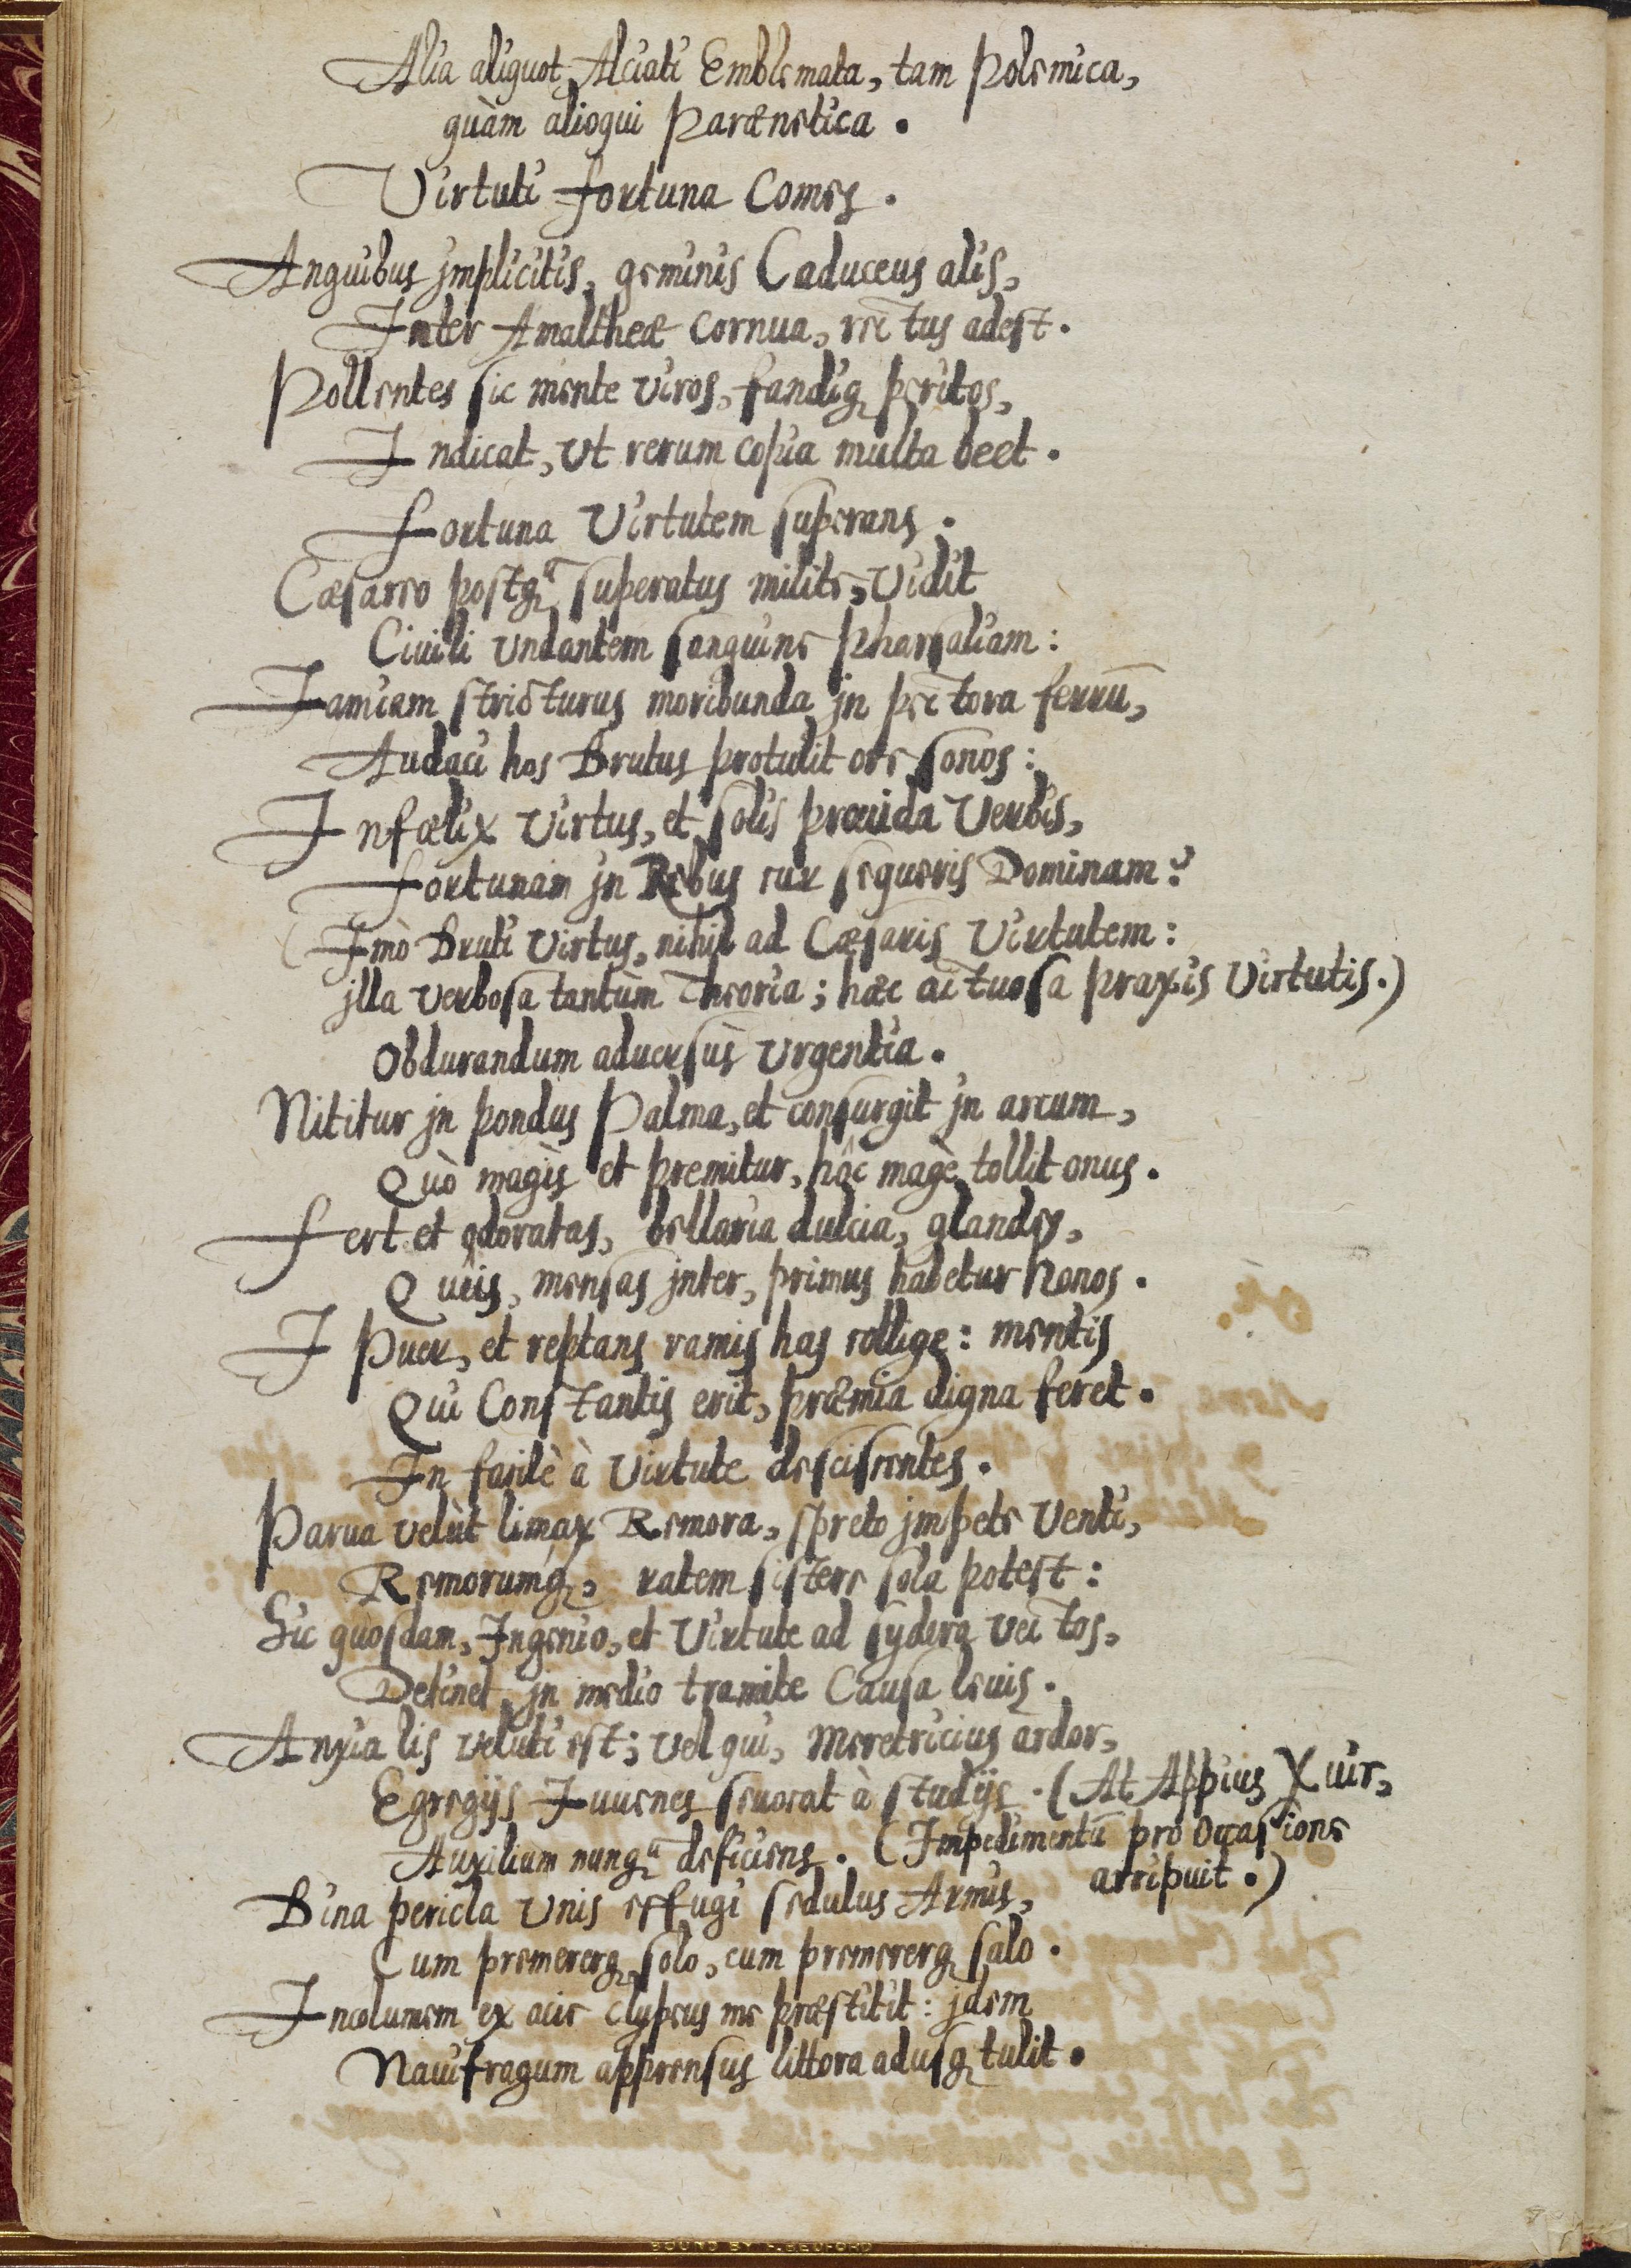 Alia aliquot Alciati Emblemata, tam Polemica,
quàm alioqui Parænetica.
Virtuti fortuna Comes.
Anguibus jmplicitis, geminis Caduceus alis,
Inter Amaltheæ Cornua, rectus adest.
Pollentes sic mente viros, fandiq peritos,
Indicat, vt rerum copia multa beet.
fortuna Virtutem superans.
Cæsareo postqᵃ superatus milite, Vidit
Ciuili vndantem sanguine Pharsaliam:
Iamiam stricturus moribunda jn pectora ferrū,
Audaci hos Brutus protulit ore sonos:
Infælix Virtus, et solis prouida Verbis,
fortunam jn Rebus cur sequeris Dominam?
(Imò Bruti Virtus, nihil ad Cæsaris Virtutem:
jlla verbosa tantùm Theoria; hæc actuosa praxis Virtutis.)
Obdurandum aduersùs vrgentia.
Nititur jn pondus Palma, et consurgit jn arcum,
Quò magìs et premitur, hôc magè tollit onus.
fert et odoratas, bellaria dulcia, glandes,
Quêis, mensas jnter, primus habetur honos.
I Puer, et reptans ramis has collige: mentis
Qui Constantis erit, præmia digna feret.
In facilè à Virtute desciscentes.
Parua velùt limax Remora, spreto jmpete Venti,
Remorumq, ratem sistere sola potest:
Sic quosdam, Ingenio, et Virtute ad sydera vectos,
Detinet jn medio tramite Causa leuis.
Anxia lis veluti est; vel qui, Meretricius ardor,
Egregijs Iuuenes seuocat à studijs. (At Appius Xuir,
Auxilium nunqᵃ deficiens. (Impedimentū pro Occasione
arripuit.)
Bina pericla vnis effugi sedulus Armis,
Cum premererq solo, cum premererq salo.
Incolumem ex acie clypeus me præstitit: jdem
Naufragum apprensus littora adusq tulit.
BOUND BY F. BEDFORD